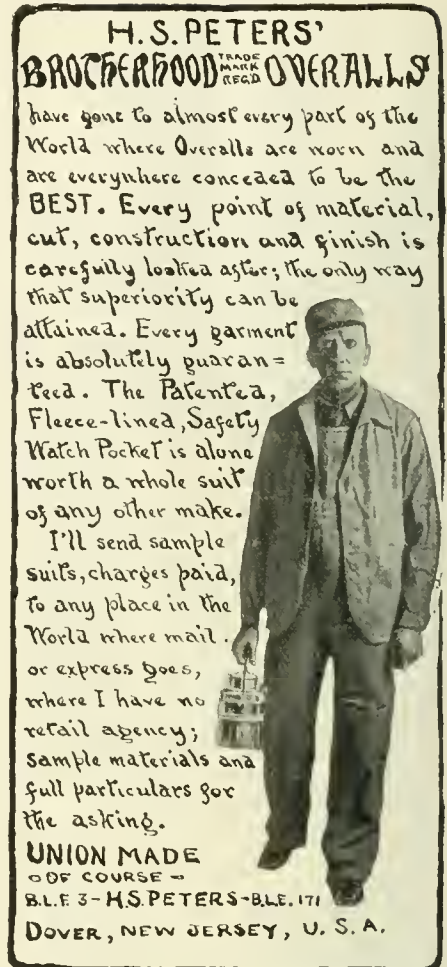 H.S. PETERS'
BROTHERHOOD TRADE MARK REG'D OVERALLS
have gone to almost every part of the
World where Overalls are worn and
are everywhere conceded to be the
BEST. Every point of material,
cut, construction and finish is
carefully looked after; the only way
that superiority can be
attained. Every garment
is absolutely guaran=
teed. The Patented,
Fleece-lined, Safety
Watch Pocket is alone
worth a whole suit
of any other make.
I'll send sample
suits, charges paid,
to any place in the
World where mail
or express goes,
where I have no
retail agency;
sample materials and
full particulars for
the asking.
UNION MADE
OF COURSE
B.L.F. 3-H.S. PETERS-B.L.E. 171
DOVER, NEW JERSEY, U.S.A.